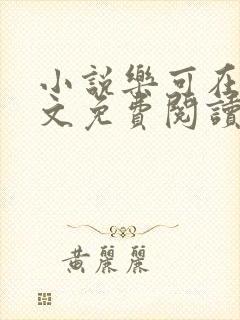 小說樂可在
文免費閱讀
黃麗麗